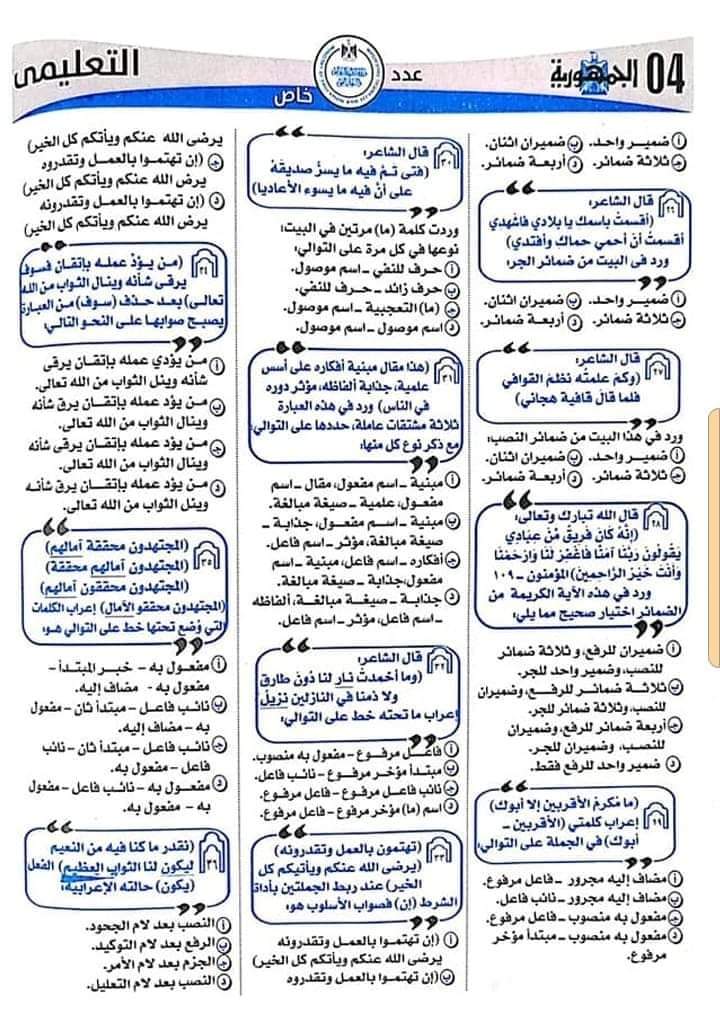 04 الجمهورية
عدد
خاص
التعليمى
أ ضميـر واحد. ب ضميران اثنان.
ج ثلاثة ضمائر. د أربعة ضمائر.
٢٦ قال الشاعر:
(أقسمتُ باسمك يا بلادي فاشهدي
أقسمت أن أحمي حماك وأفتدي)
ورد فى البيت من ضمائر الجر:
أ ضميـر واحد. ب ضميران اثنان.
ج ثلاثة ضمائر. د أربعة ضمائر.
٢٧ قال الشاعر:
(وكم علمتُه نظمَ القوافي
فلما قالَ قافية هجاني)
ورد في هذا البيت من ضمائر النصب:
أ ضمير واحد. ب ضميران اثنان.
ج ثلاثة ضمائر. د أربعة ضمائر.
٢٨ قال الله تبارك وتعالى:
(إِنَّهُ كَانَ فَرِيقٌ مِّنْ عِبَادِي
يَقُولُونَ رَبَّنَا آمَنَّا فَاغْفِرْ لَنَا وَارْحَمْنَا
وَأَنتَ خَيْرُ الرَّاحِمِينَ) المؤمنون - ١٠٩
ورد في هذه الآية الكريمة من
الضمائر اختيار صحيح مما يلي:
أ ضميران للرفع، و ثلاثة ضمائر
للنصب، وضمير واحد للجر.
ب ثلاثة ضمائر للرفـع، وضميران
للنصب، وثلاثة ضمائر للجر.
ج أربعة ضمائر للرفع، وضميران
للنصب، وضميران للجر.
د ضمير واحد للرفع فقط.
٢٩ (ما مُكرمٌ الأقربين إلا أبوك)
إعراب كلمتي (الأقربين –
أبوك) في الجملة على التوالي:
أ مضاف إليه مجرور – فاعل مرفوع.
ب مضاف إليه مجرور – نائب فاعل.
ج مفعول به منصوب – فاعل مرفوع.
د مفعول به منصوب – مبتدأ مؤخر
مرفوع.
٣٠ قال الشاعر:
(فتى تمَّ فيه ما يسرُّ صديقَهُ
على أنَّ فيه ما يسوء الأعاديا)
وردت كلمة (ما) مرتين في البيت؛
نوعها في كل مرة على التوالي:
أ حرف للنفي – اسم موصول.
ب حرف زائد – حرف للنفي.
ج (ما) التعجبية – اسم موصول.
د اسم موصول – اسم موصول.
٣١ (هذا مقال مبنية أفكاره على أسس
علمية، جذابة ألفاظه، مؤثر دوره
في الناس) ورد في هذه العبارة
ثلاثة مشتقات عاملة، حددها على التوالي
مع ذكر نوع كل منها:
أ مبنية – اسم مفعول، مقال – اسم
مفعول، علمية – صيغة مبالغة.
ب مبنية – اسـم مفعول، جذابـة –
صيغة مبالغة، مؤثر – اسم فاعل.
ج أفكاره – اسم فاعل، مبنية – اسم
مفعول، جذابة – صيغة مبالغة.
د جذابـة – صيغـة مبالغـة، ألفاظه
– اسم فاعل، مؤثر – اسم فاعل.
٣٢ قال الشاعر:
(وما أخمدتْ نار لنا دُونَ طارق
ولا ذمنا في النازلين نزيلُ)
إعراب ما تحته خط على التوالي:
أ فاعـل مرفوع – مفعول به منصوب.
ب مبتدأ مؤخر مرفوع – نائب فاعل.
ج نائب فاعل مرفوع – فاعل مرفوع.
د اسم (ما) مؤخر مرفوع – فاعل مرفوع.
٣٣ (تهتمون بالعمل وتقدرونه)
(يرضى الله عنكم ويأتيكم كل
الخير) عند ربط الجملتين بأداة
الشرط (إن) فصواب الأسلوب هو:
أ (إن تهتموا بالعمـل وتقدرونه
يرضى الله عنكم ويأتكم كل الخير)
ب (إن تهتموا بالعمـل وتقدروه
يرضى الله عنكم ويأتكم كل الخير)
ج (إن تهتموا بالعمـل وتقدروه
يرض الله عنكم ويأتكم كل الخير)
د (إن تهتموا بالعمل وتقدرونه
يرض الله عنكم ويأتكم كل الخير)
٣٤ (من يؤدِّ عمله بإتقان فسوف
يرقى شأنه وينال الثواب من الله
تعالى) بعد حذف (سوف) من العبارة
يصبح صوابها على النحو التالي:
أ من يؤدي عمله بإتقان يرقى
شأنه وينل الثواب من الله تعالى.
ب من يؤد عمله بإتقان يرق شأنه
وينال الثواب من الله تعالى.
ج من يؤد عمله بإتقان يرقى شأنه
وينال الثواب من الله تعالى.
د من يؤد عمله بإتقان يرق شأنه
وينل الثواب من الله تعالى.
٣٥ (المجتهدون محققة آمالهم)
(المجتهدون آمالهم محققة)
(المجتهدون محققون آمالهم)
(المجتهدون محققو الآمال) إعراب الكلمات
التي وُضع تحتها خط على التوالي هو:
أ مفعول به – خبـر المبتدأ –
مفعول به - مضاف إليه.
ب نائب فاعـل – مبتدأ ثان – مفعول
به – مضاف إليه.
ج نائب فاعـل – مبتدأ ثان – نائب
فاعل – مفعول به.
د مفعول به – نائب فاعل – مفعول
به – مفعول به.
٣٦ (نقدر ما كنا فيه من النعيم
ليكون لنا الثواب العظيم) الفعل
(يكون) حالته الإعرابية:
أ النصب بعد لام الجحود.
ب الرفع بعد لام التوكيد.
ج الجزم بعد لام الأمر.
د النصب بعد لام التعليل.